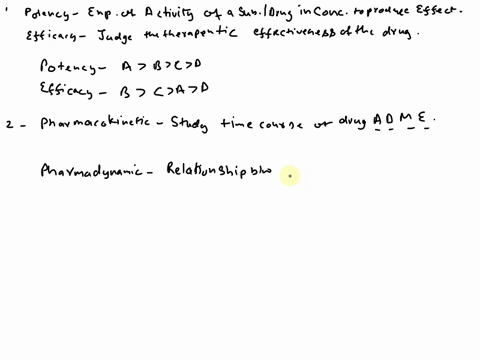 1 Potency - Exp. of Activity of a Sub./Drug in Conc. to produce Effect.
Efficacy - Judge the therapeptic effectiveness of the drug.
Potency - A > B > C > D
Efficacy - B > C > A > D
2 - Pharmacokinetic - Study time course of drug A D M E.
Pharmadynamic - Relationship b/w